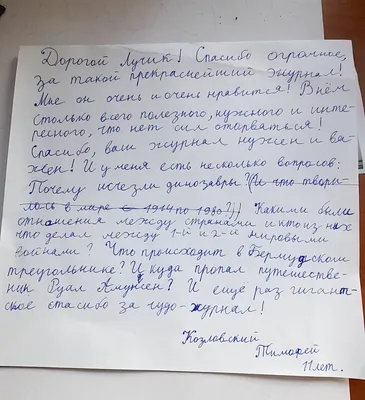 Дорогой Лучик! Спасибо огромное,
за такой прекраснейший журнал!
Мне он очень и очень нравится! В нём
столько всего полезного, нужного и инте-
ресного, что нет сил оторваться!
Спасибо, ваш журнал нужен и ва-
жен! И у меня есть несколько вопросов:
Почему исчезли динозавры? (И что твори-
лось в мире с 1914 по 1980?)) Какими были
отношения между странами и кто из них
что делал между 1-й и 2-й мировыми
войнами? Что происходит в Бермудском
треугольнике? И куда пропал путешестве-
ник Руал Амундсен? И ещё раз гигант-
ское спасибо за чудо-журнал!
Козловский
Тимофей
11 лет.